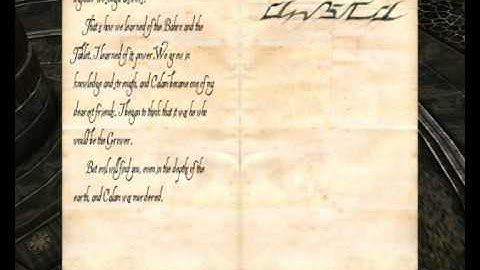 That is how we learned of the Bahre and the
Tablet. I learned of its power. We grew in
knowledge and strength, and Calam became one of my
dearest friends. I began to think that it was he who
would be the Grower.
But evil will find you, even in the depths of the
earth, and Calam was murdered.